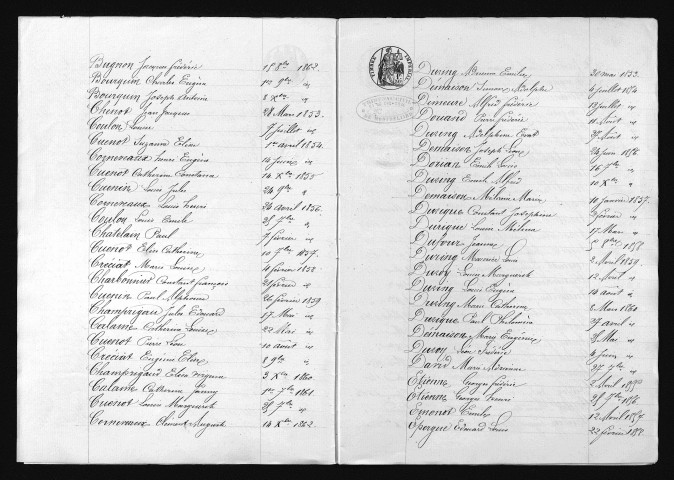 Bugnon Jacques Frédéric 15 8bre 1862.
Bourquin Charles Eugène 1er 9bre "
Bourquin Joseph 8 Xbre "
Chenot Jean Jacques 28 Mars 1853.
Coulon Louise 7 juillet "
Cuenot Suzanne Elise 1er avril 1854.
Cornevaux Henri Eugène 14 juin "
Cuenot Catherine 14 Xbre 1855
Cuenin Louis Jules 24 9bre "
Cornevaux Louis Henri 26 avril 1856.
Coulon Louis Emile 25 7bre "
Chatelain Paul 7 février "
Cuenot Elise Catherine 10 7bre 1857.
Créciat Marie Louise 4 février 1858.
Charbonnet Constant François 21 février "
Cuenin Paul Alphonse 26 février 1859
Champrigaud Jules Edouard 17 Mai "
Calame Catherine Louise 22 Mai "
Cuenot Pierre Léon 10 août "
Créciat Eugénie Elise 8 9bre "
Champrigaud Elise 3 Xbre 1860.
Calame Catherine Fanny 1er 7bre 1861
Cuenot Louise Marguerite 25 7bre "
Cornevaux Clément Auguste 14 Xbre 1862.
TIMBRE IMPERIAL
During Emilie 30 mai 1853.
Démaison Adolphe 4 juillet 1854
Demeure Alfred Frédéric 18 juillet "
Pierre Frédéric 11 Août "
During Adolphine 27 Août "
Démaison Joseph Louis 24 juin 1856
Dorian Emile Louis 16 7bre "
During Emile Alfred 10 Xbre "
Demaison Mélina Marie 10 janvier 1857.
Durigue Constant Joséphine 3 février "
Durigue Louise Mélina 17 Mars "
Dufour Jeanne 5 8bre 1858
During Louis 2 Avril 1859.
Duroy Louise Marguerite 12 Août "
During Louis Eugène 14 août "
During Marie Catherine 5 Mars 1860
Durigue Paul 27 avril "
Démaison Marie Eugénie 3 Mai "
Duroy Frédéric 4 Juin "
David Marie 27 7bre "
Etienne Georges Frédéric 2 Avril
Etienne Georges Henri 28 7bre 1856.
Emonot Emile 12 Avril
Eporque Edouard Louis 22 février